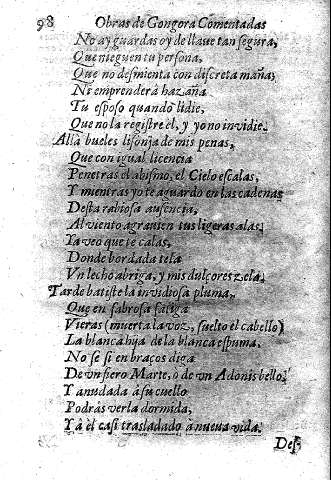 98 Obras de Gongora Comentadas
No ay guardas oy de llaue tan segura,
Que nieguen tu persona,
Que no desmienta con discreta maña;
Ni emprenderà hazaña
Tu esposo quando lidie,
Que no la registre èl, y yo no inuidie.
Allà bueles lisonja de mis penas,
Que con igual licencia
Penetras el abismo, el Cielo escalas,
Y mientras yo te aguardo en las cadenas
Desta rabiosa ausencia,
Al viento agrauien tus ligeras alas;
Ya veo que te calas,
Donde bordada tela
Vn lecho abriga, y mis dulçores zela.
Tarde batiste la inuidiosa pluma,
Que en sabrosa fatiga
Vieras (muerta la voz, suelto el cabello)
La blanca hija de la blanca espuma,
No sè si en braços diga
De vn fiero Marte, o de vn Adonis bello;
Y anudada à su cuello
Podràs verla dormida,
Y à èl casi trasladado à nueua vida.
Des-